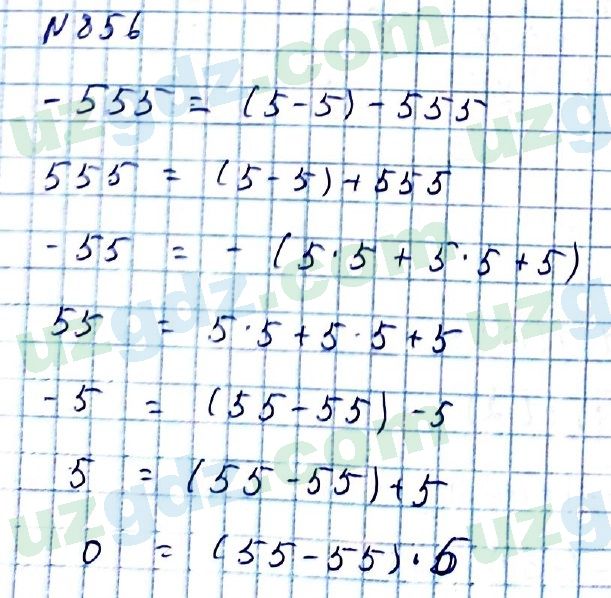 N 856
-555 = (5-5)-555
555 = (5-5)+555
-55 = -(5·5+5·5+5)
55 = 5·5+5·5+5
-5 = (55-55)-5
5 = (55-55)+5
0 = (55-55)·5
uzgdz.com